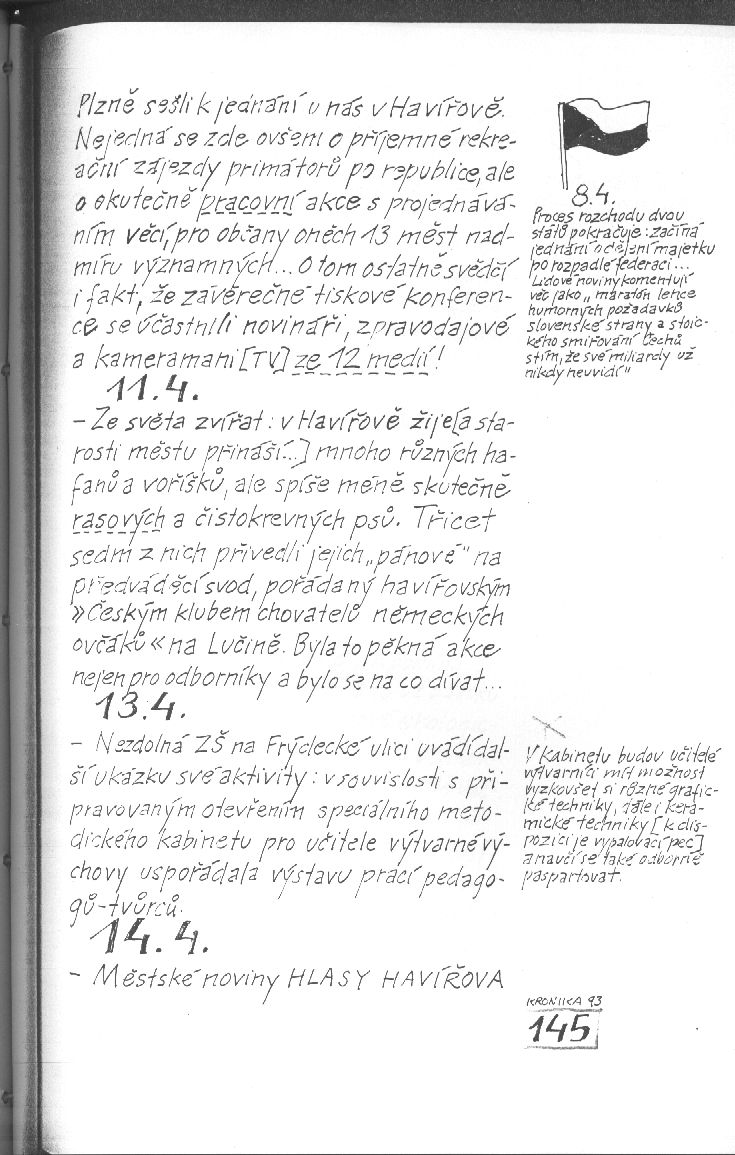 Plzně sešli k jednání u nás v Havířově.
Nejedná se zde ovšem o příjemné rekre-
ační zájezdy primátorů po republice, ale
o skutečně pracovní akce s projednává-
ním věcí, pro občany oněch 13 měst nad-
míru významných... O tom ostatně svědčí
i fakt, že závěrečné tiskové konferen-
ce se účastnili novináři, zpravodajové
a kameramani [TV] ze 12 medií!
11.4.
- Ze světa zvířat: v Havířově žije [a sta-
rosti městu přináší...] mnoho různých ha-
fanů a voříšků, ale spíše méně skutečně
rasových a čistokrevných psů. Třicet
sedm z nich přivedli jejich „pánové" na
předváděcí svod, pořádaný havířovským
»Českým klubem chovatelů německých
ovčáků« na Lučině. Byla to pěkná akce
nejen pro odborníky a bylo se na co dívat...
13.4.
- Nezdolná ZŠ na Frýdecké ulici uvádí dal-
ší ukázku své aktivity: v souvislosti s při-
pravovaným otevřením speciálního meto-
dického kabinetu pro učitele výtvarné vý-
chovy uspořádala výstavu prací pedago-
gů-tvůrců.
14.4.
- Městské noviny HLASY HAVÍŘOVA
8.4.
Proces rozchodu dvou
států pokračuje: začíná
jednání o dělení majetku
po rozpadlé federaci...
Lidové noviny komentují
věc jako „maratón lehce
humorných požadavků
slovenské strany a stoic-
kého smiřování Čechů
s tím, že své miliardy už
nikdy neuvidí"
V kabinetu budou učitelé
výtvarníci mít možnost
vyzkoušet si různé grafic-
ké techniky, dále i kera-
mické techniky [k dis-
pozici je vypalovací pec]
a naučí se také odborně
paspartovat.
KRONIKA 93
145